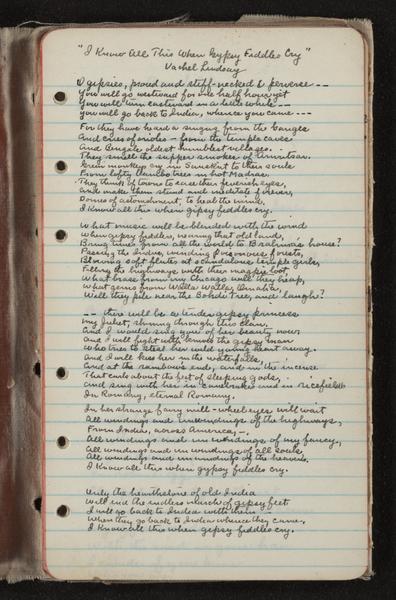 "I Know All This When Gypsy Fiddles Cry"
Vachel Lindsay
O gipsies, proud and stiff-necked & perverse --
You will go westward for one half hour yet
You will turn eastward in a little while --
You will go back to India, whence you came ---
For they have heard a singing from the Ganges
And cries of orioles - from the temple caves
And Bengal's oldest humblest villages.
They smell the supper smokes of Amritsar.
Green monkeys cry in Sanskrit to their souls
From lofty bamboo trees in hot Madras.
They think of towns to ease their feverish eyes,
And make them stand and meditate forever,
Domes of astonishment, to heal the mind.
I know all this when gipsy fiddles cry.
What music will be blended with the wind
When gipsy fiddlers, nearing that old land,
Bring tunes from all the world to Brahma's house?
Passing the Indus, winding poisonous forests,
Blowing soft flutes at scandalous temple girls,
Filling the highways with their magpie loot,
What brass from my Chicago will they heap,
What gems from Walla Walla, Omaha,
Will they pile near the Bodhi Tree, and laugh?
-- there will be a wonder gipsy princess
My Juliet, shining through this clan.
And I would sing you of her beauty now.
And I will fight with knives the gipsy man
Who tries to steal her wild young heart away.
And I will kiss her in the waterfalls,
And at the rainbow's end, and in the incense
That curls about the feet of sleeping gods,
And sing with her in canebrakes and in rice fields
In Romany, eternal Romany.
In her strange fairy mill-wheel eyes will wait
All windings and unwindings of the highways,
From India, across America, -
All windings and unwindings of my fancy,
All windings and unwindings of all souls,
All windings and unwindings of the heavens.
I know all this when gypsy fiddles cry.
Only the hearthstone of old India
Will end the endless march of gipsy feet
I will go back to India with them
When they go back to India whence they came,
I know all this when gipsy fiddles cry.